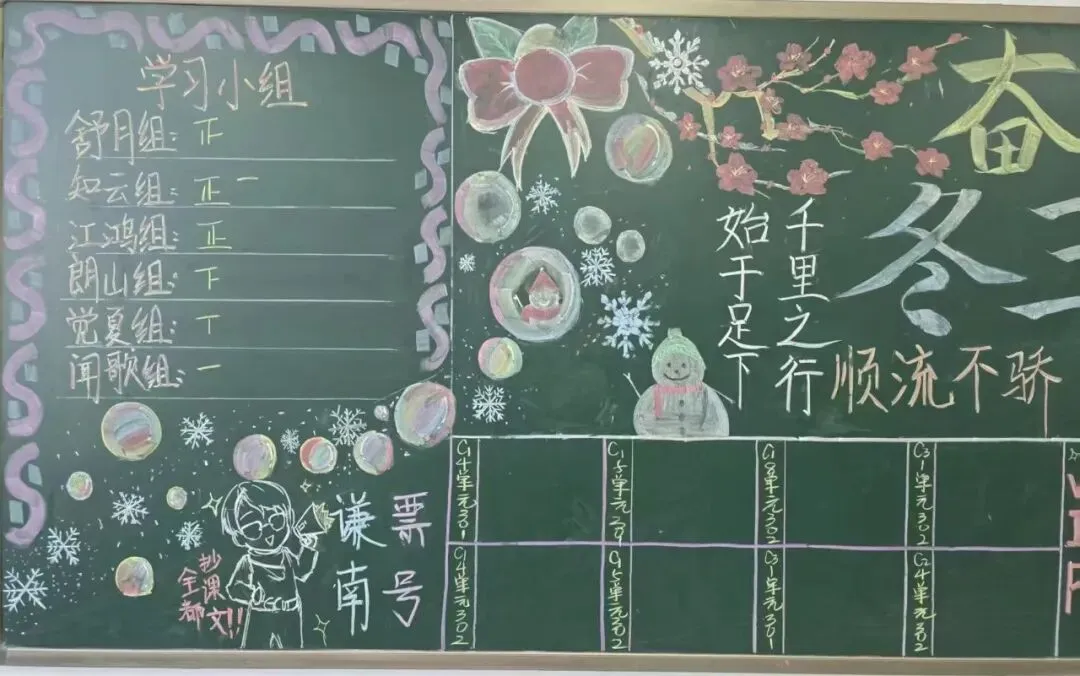 学习小组
舒月组：正
知云组：正一
江鸿组：正
朗山组：下
觉夏组：丅
闻歌组：一
抄课文!!
全都
票号
谦南
奋
冬三
千里之行
始于足下
顺流不骄
C14单元301
C15单元201
C18单元302
C31单元302
C14单元302
C15单元302
C31单元301
C24单元302
VIP